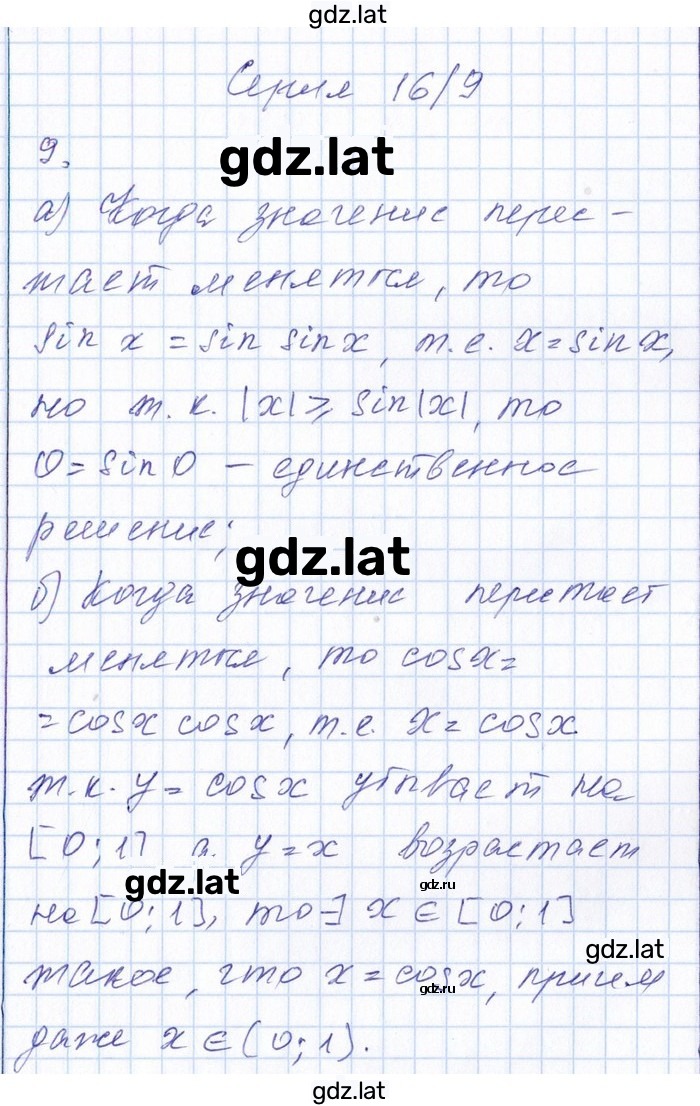 gdz.lat
Серия 16/9
9.
gdz.lat
а) Когда значение перес-
тает меняться, то
sin x = sin sin x, т.е. x = sin x,
но т.к. |x| ⩾ sin|x|, то
0 = sin 0 – единственное
решение;
gdz.lat
б) Когда значение перестает
меняться, то cos x =
= cos x cos x, т.е. x = cos x
т.к. y = cos x убывает на
[0; 1] а y = x возрастает
gdz.lat
gdz.ru
на [0; 1], то ∃ x ∈ [0; 1]
gdz.lat
такое, что x = cos x, причем
gdz.ru
даже x ∈ (0; 1).
gdz.lat